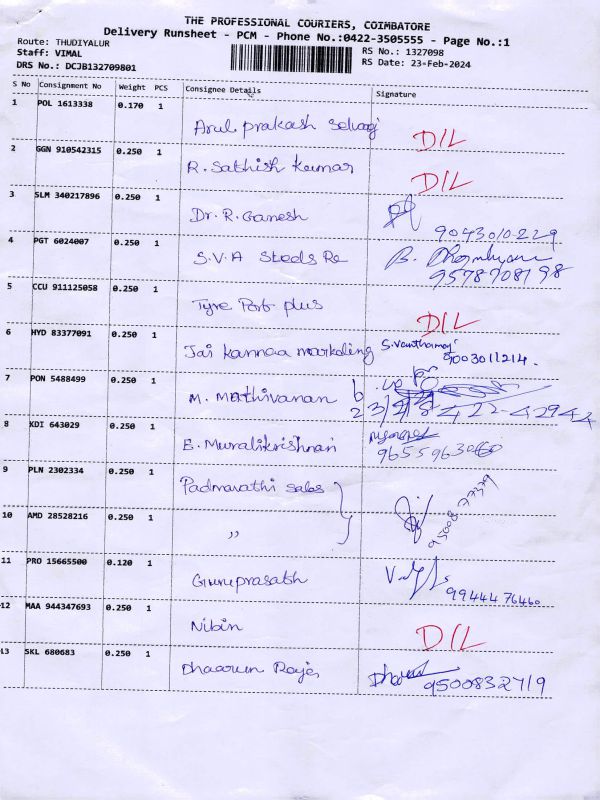 THE PROFESSIONAL COURIERS, COIMBATORE
Delivery Runsheet - PCM - Phone No.:0422-3505555 - Page No.:1
Route: THUDIYALUR
Staff: VIMAL
DRS No.: DCJB132709801
RS No.: 1327098
RS Date: 23-Feb-2024
S No Consignment No Weight PCS Consignee Details Signature
1 POL 1613338 0.170 1
Arul prakash selvaraj D/L
2 GGN 910542315 0.250 1
R. Sathish kumar D/L
3 SLM 340217896 0.250 1
Dr. R. Ganesh 9043010229
4 PGT 6024007 0.250 1
S.V.A Steels Re B.
9578708198
5 CCU 911125058 0.250 1
Tyre Port plus D/L
6 HYD 83377091 0.250 1
Jai kannaa marketing S.Vanthamaj
9003011214.
7 PON 5488499 0.250 1
M. Mathivanan
8 KDI 643029 0.250 1
E. Muralikrishnan
9 PLN 2302334 0.250 1
Padmavathi sales 9500877379
10 AMD 28528216 0.250 1
,,
11 PRO 15665500 0.120 1
Guruprasath 9944476460
12 MAA 944347693 0.250 1
Nibin D/L
13 SKL 680683 0.250 1
Dhaarun Raja 9500832719